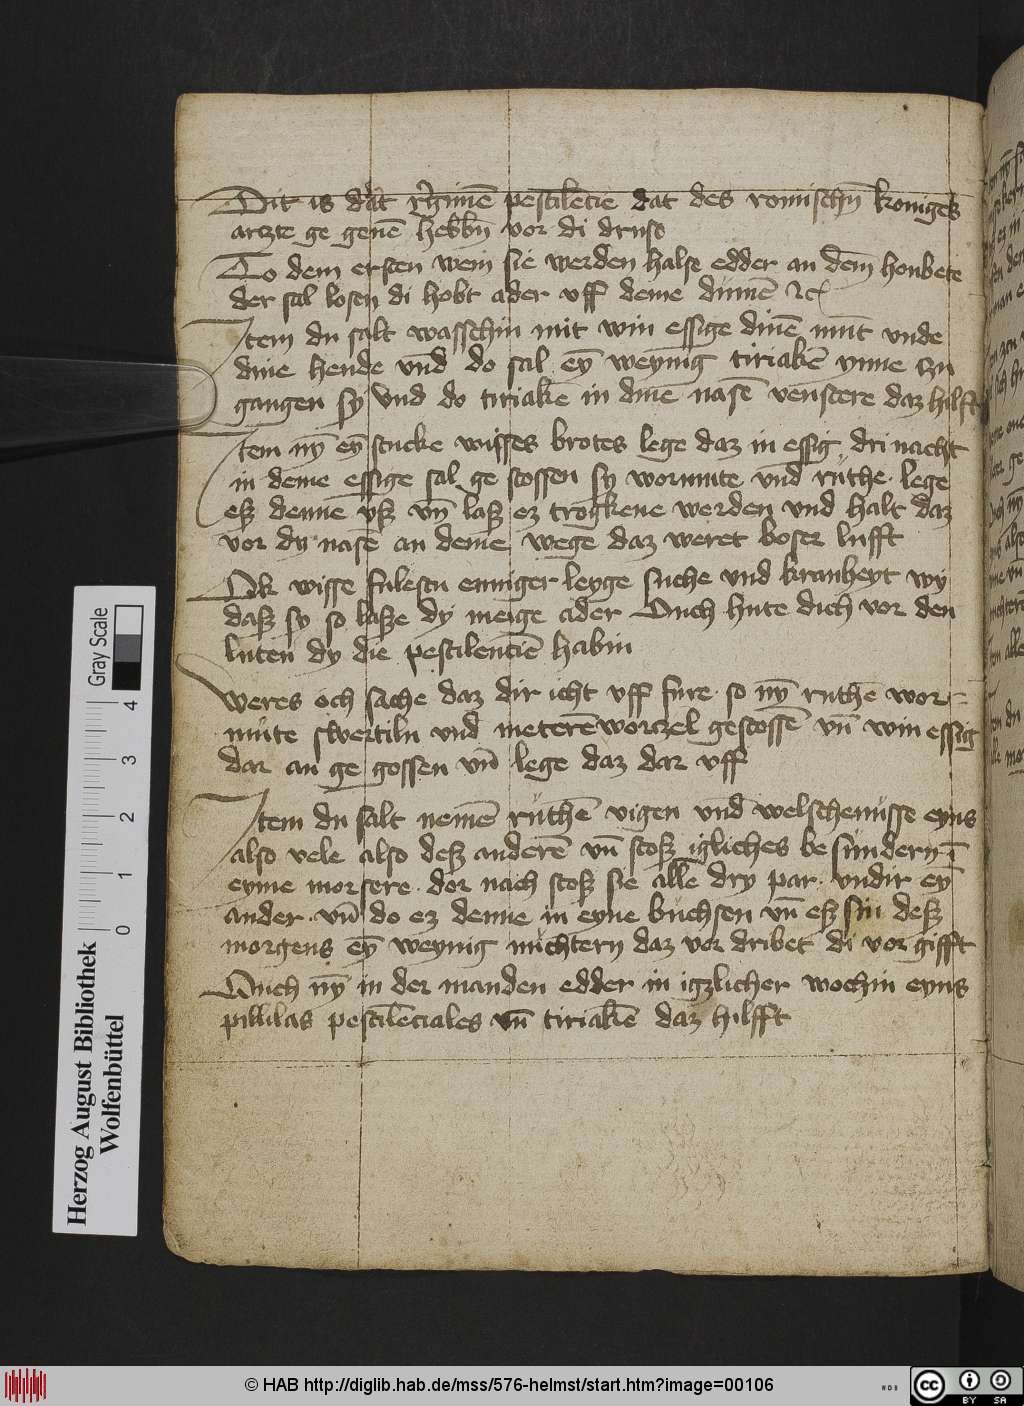 Dit is dat regimē pestilēcie dat des romischn̄ koniges
arzte ge genē hebbn̄ vor di druse
To dem ersten wem sie werden halse edder an dem houbete
der sal losen di hobt ader vff deme dumē ⁊c̄
Item du salt wasschin mit win essige dinē munt vnde
dine hende vnd do sal eȳ weynig tiriakē ynne
gangen sy vnd do tiriake in dine nasē venstere daz hilft
Item nȳ eȳ stucke wisses brotes lege daz in essig dri nacht
in deme essige sal ge stossen sy wormute vnd rüthe lege
eß denne vß vn̄ laß ez trogkene werden vnd halt daz
vor dy nasē an deme wege daz weret boser lufft
Ok wisse fulestu enniger leyge suche vnd krankheyt wy
daß sy so laße dy meige ader Ouch hute dich vor den
luten dy die pestilencien habin
Weres och sache daz dir icht vff fure so nȳ ruthē wor=
mute swertiln vnd meterēworczel gestossē vn̄ win essig
dar an ge gossen vn̄ lege daz dar vff
Item du salt nemē rüthē vigen vnd welschenüsse eyns
also vele also deß anderē vn̄ stoß igliches be sundern ī
eyme morsere dor nach stoß sie alle dry par vndir eȳ
ander vn̄ do ez denne in eyne büchsen vn̄ eß sin deß
morgens eȳ weynig nüchtern daz vor dribet di vor gifft
Ouch nȳ in der manden edder in igzlicher wochin eyns
pillulas pestilēciales vn̄ tiriakē daz hilfft
Herzog August Bibliothek
Wolfenbüttel
0 1 2 3 4
Gray Scale
© HAB http://diglib.hab.de/mss/576-helmst/start.htm?image=00106
cc
BY SA